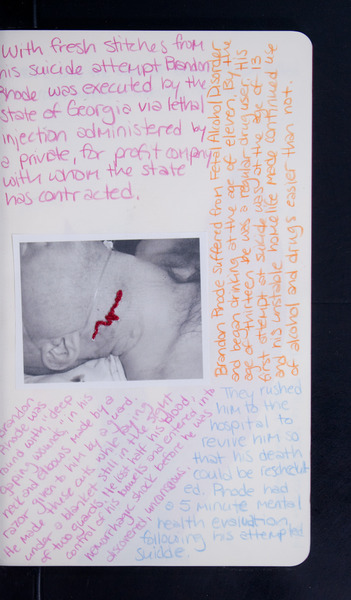 With fresh stitches from
his suicide attempt Brandon
Rhode was executed by the
state of Georgia via lethal
injection administered by
a private, for profit company
with whom the state
has contracted.
Brandon Rhode suffered from Fetal Alcohol Disorder
and began drinking at the age of eleven. By the
age of thirteen he was a regular drug user. His
first attempt at suicide was at the age of 13
and his unstable homelife made continued use
of alcohol and drugs easier than not.
Brandon
Rhode was
found with "deep
gaping wounds," in his
neck and elbows made by a
razor given to him by a guard.
He made these cuts while laying
under a blanket still in the sight
of two guards. He lost half his blood,
control of his bowels and entered into
hemorrhagic shock before he was
discovered, unconscious.
They rushed
him to the
hospital to
revive him so
that his death
could be reschedul
ed. Rhode had
a 5 minute mental
health evaluation,
following his attempted
suicide.